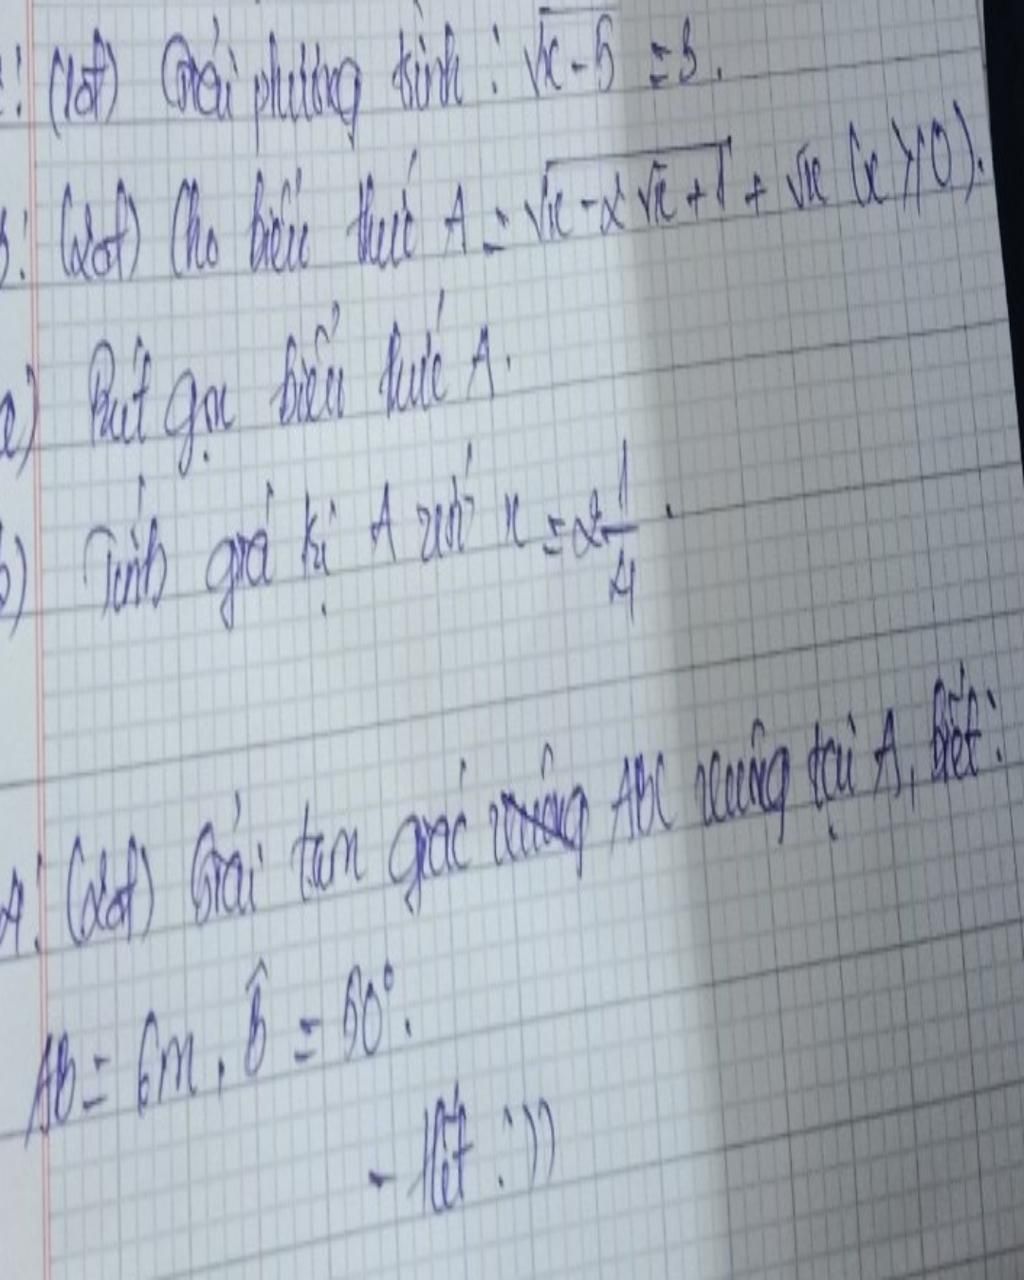 : (1đ) Giải phương trình : √x-5 = 3.
: (2đ) Cho biểu thức A = √x-2√x+1 + √x (x ≥ 0).
a) Rút gọn biểu thức A.
b) Tính giá trị A với x = 2 1/4.
4: (2đ) Giải tam giác ABC vuông tại A, biết:
AB = 6m, B̂ = 60°.
- Hết :))